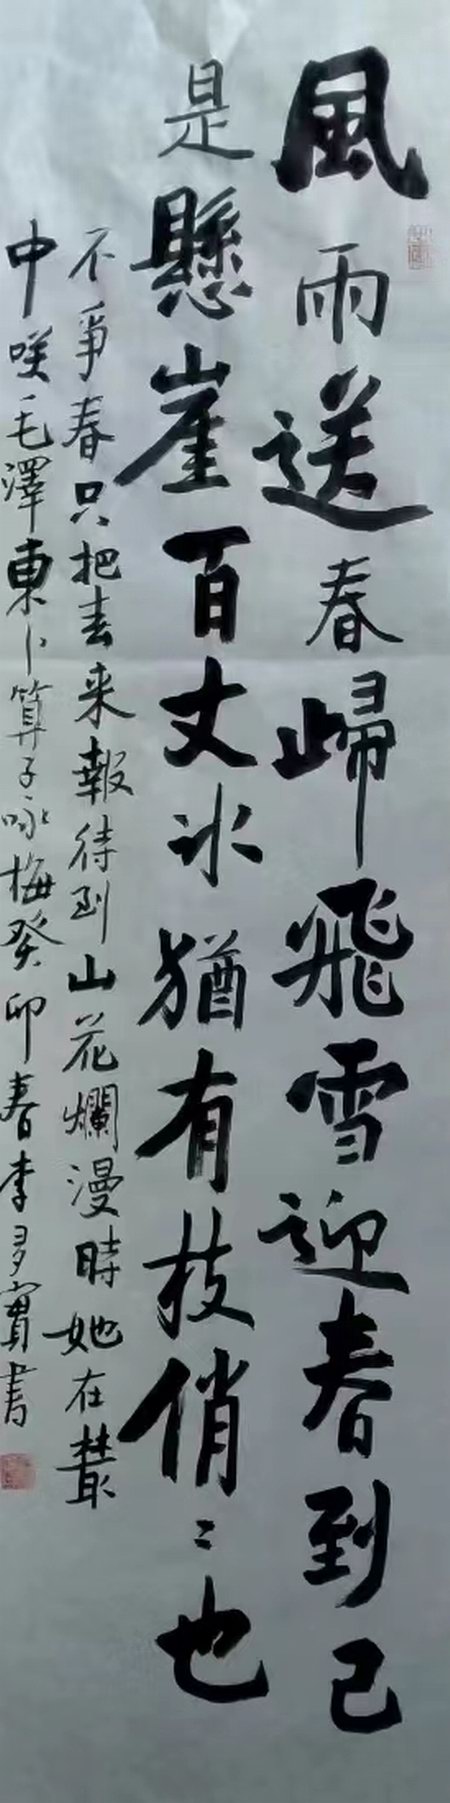 風雨送春歸飛雪迎春到已
是懸崖百丈冰猶有枝俏〻也
不爭春只把春来報待到山花爛漫時她在叢
中咲毛澤東卜算子咏梅癸卯春李多寶書